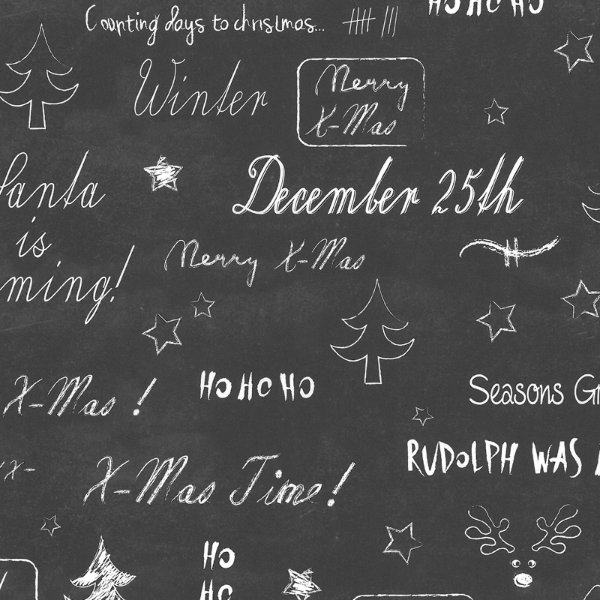 HO HO HO
Counting days to christmas...
Winter
Merry
X-Mas
Santa
is
ming!
December 25th
Merry X-Mas
X-Mas !
HO HO HO
Seasons Gr
RUDOLPH WAS
X-Mas Time!
HO
HO